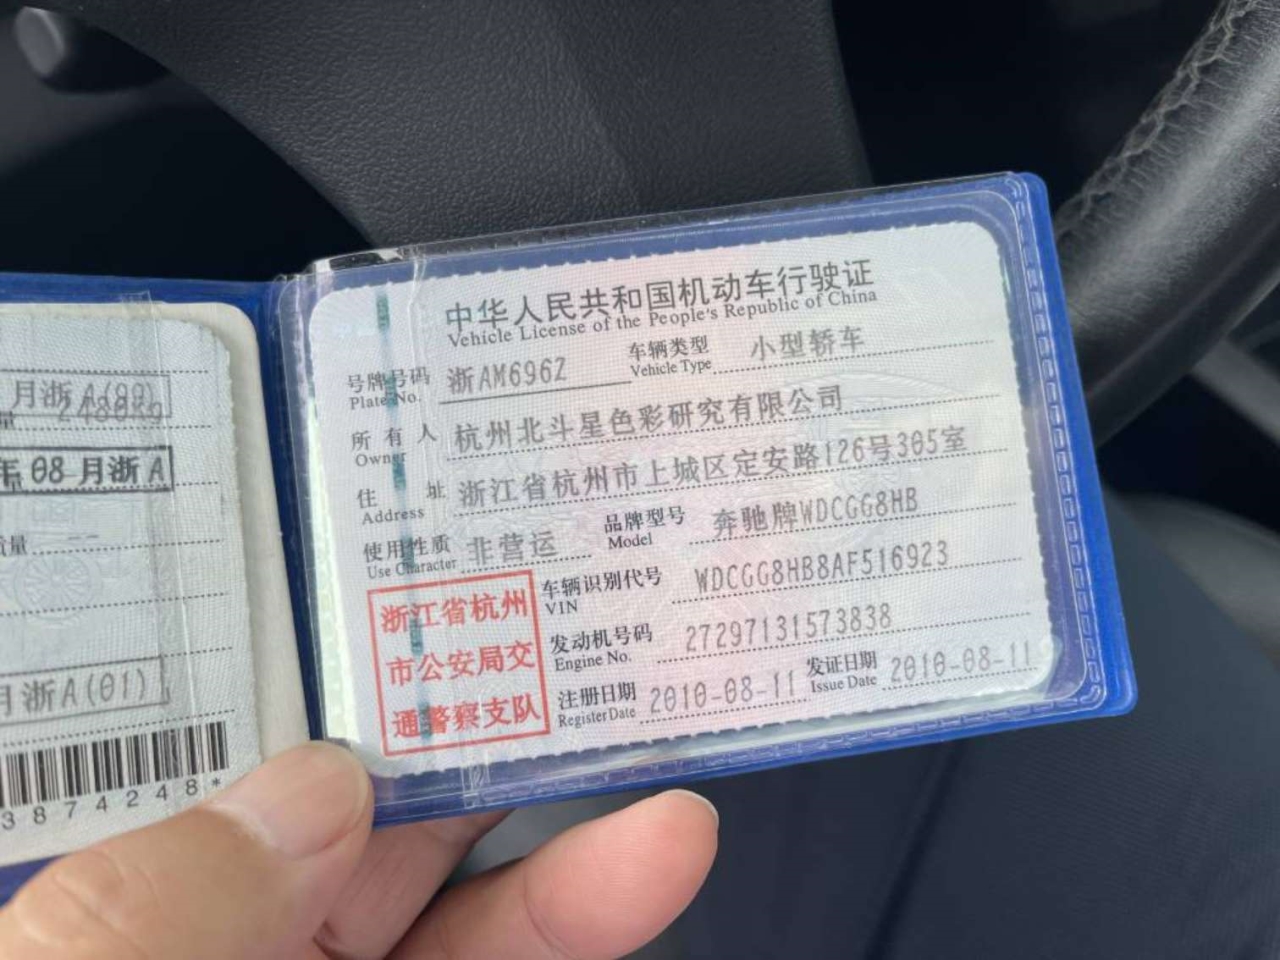 月浙A(99)
年08月浙A
质量
月浙A(01)
3874248*
中华人民共和国机动车行驶证
Vehicle License of the People's Republic of China
号牌号码 浙AM696Z 车辆类型 小型轿车
Plate No. Vehicle Type
所有人 杭州北斗星色彩研究有限公司
Owner
住址 浙江省杭州市上城区定安路126号305室
Address
使用性质 非营运 品牌型号 奔驰牌WDCGG8HB
Use Character Model
浙江省杭州
市公安局交
通警察支队
车辆识别代号 WDCGG8HB8AF516923
VIN
发动机号码 27297131573838
Engine No.
注册日期 2010-08-11 发证日期 2010-08-11
Register Date Issue Date